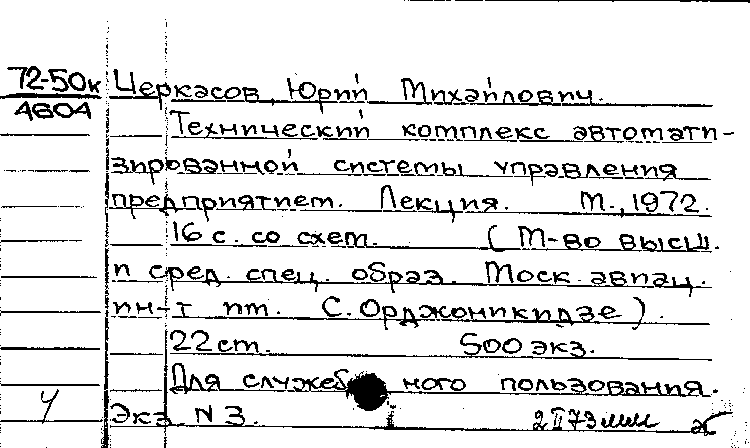 72-50к Черкасов, Юрий Михайлович.
А804
Технический комплекс автомати-
зированной системы управления
предприятием. Лекция. М., 1972.
16 с. со схем. (М-во высш.
и сред. спец. образ. Моск. авиац.
ин-т им. С. Орджоникидзе).
22 см. 500 экз.
Для служебного пользования.
Экз N 3.